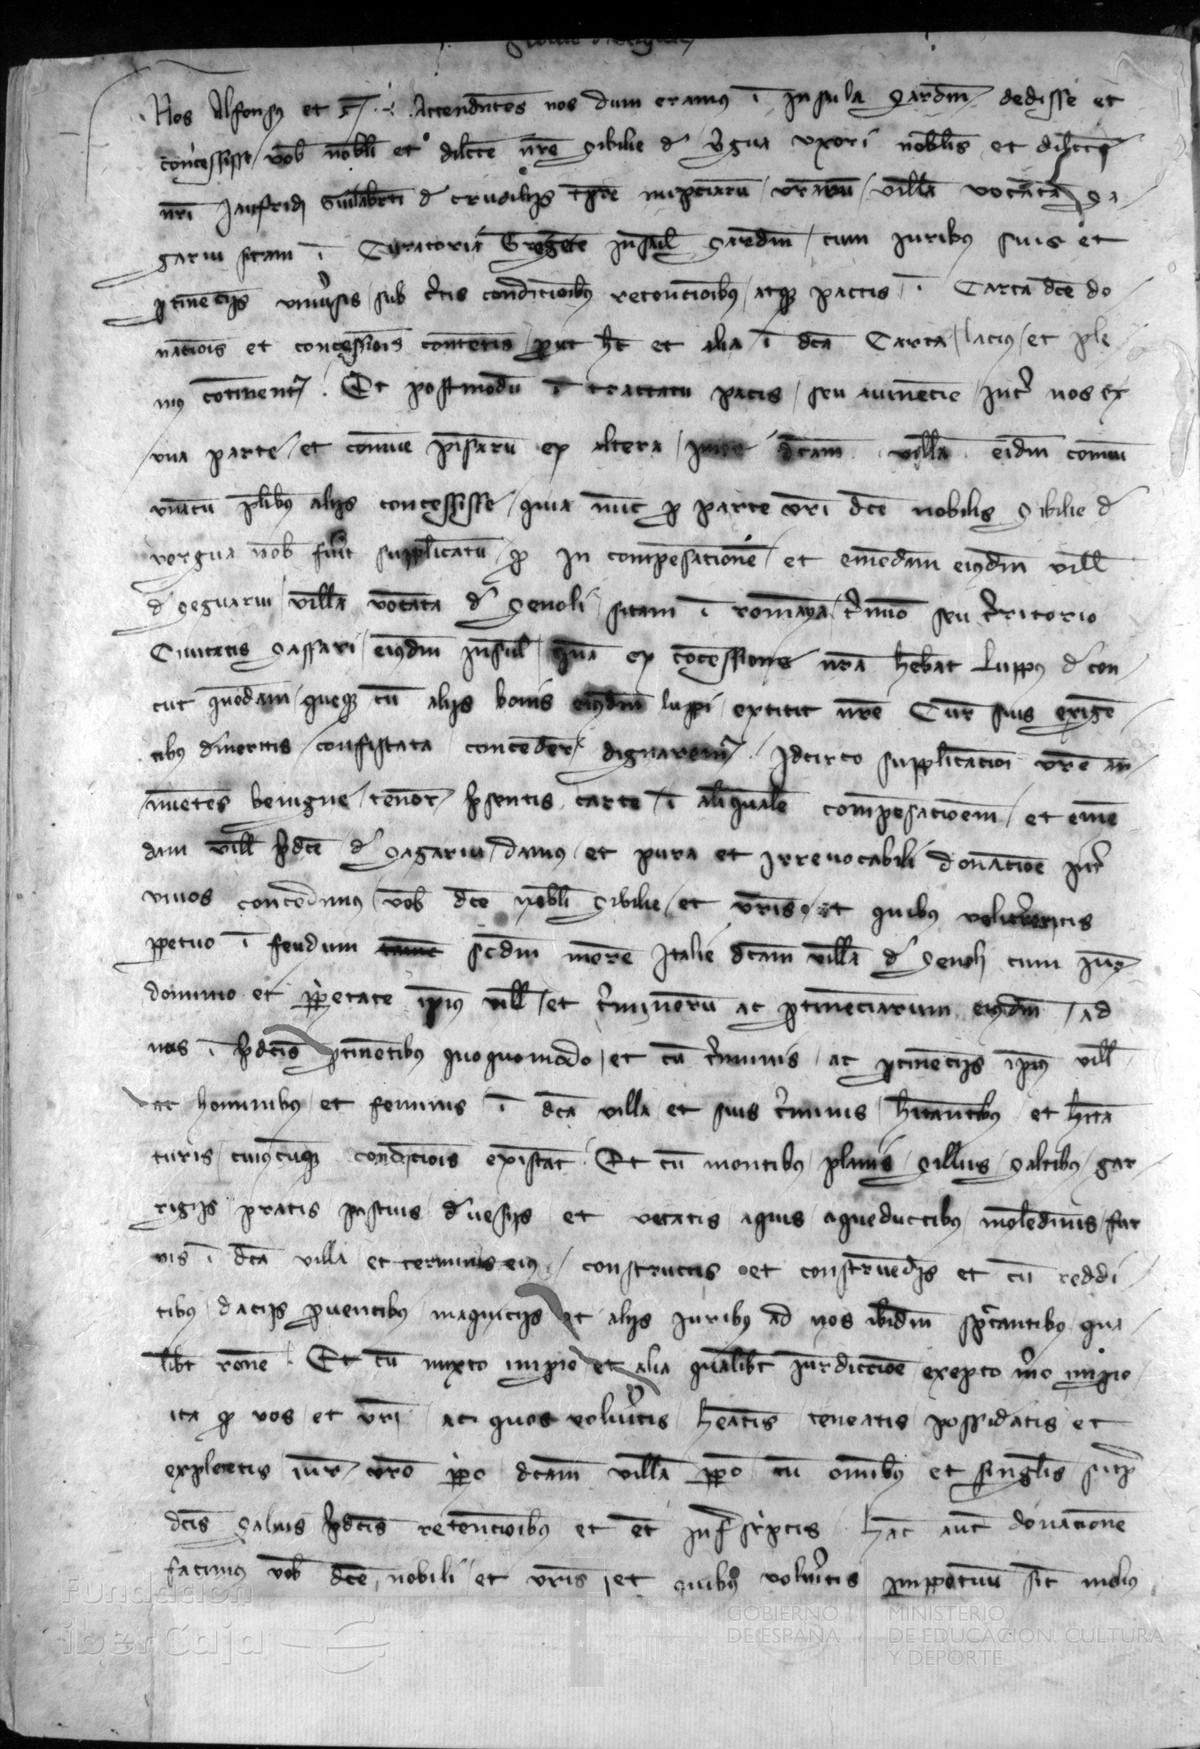 Nos Alfonsus et cetera. Attendentes nos dum eramus in Insula Sardinie dedisse et
concessisse vobis nobili et dilecte nostre Sibilie de Vergua uxori nobilis et dilecti
nostri Jaufridi Gilaberti de Crudiliis tempore nupciarum vestrarum villam vocatam Sa
gariu sitam in Curatoria insule Sardinie cum juribus suis et
pertinenciis universis sub certis condicionibus retencionibus atque pactis in Carta dicte do
nacionis et concessionis contentis prout hec et alia in dicta Carta lacius et ple
nius continentur. Et postmodum in tractatu pacis seu avinencie inter nos ex
una parte et comune Pisarum ex altera dictam villam eidem comuni
unacum pluribus aliis concessisse quia nunc pro parte vestri dicte nobilis Sibilie de
Vergua nobis fuit supplicatum quod in compensacionem et emendam eiusdem ville
de Seguariu villam vocatam de Senoli sitam in Romanya termino seu territorio
Civitatis Sassari eiusdem insule quam ex concessione nostra habebat Luppus de
quondam queque cum aliis bonis eiusdem Luppi extitit nostre Curie suis exigen
tibus demeritis confiscata concedere dignaremur. Idcirco supplicacioni vestre an
nuentes benigne tenore presentis carte in aliqualem compensacionem et emen
dam ville predicte de Sagariu damus et pura et irrevocabili donacione inter
vivos concedimus vobis dicte nobili Sibilie et vestris et quibus volueritis
perpetuo in feudum secundum morem Italie dictam villam de Senoli cum jure
dominio et proprietate ipsius ville et terminorum ac pertinenciarum eiusdem ad
nos in predictis pertinentibus quoquomodo et cum terminis ac pertinenciis ipsius ville
ac hominibus et feminis in dicta villa et suis terminis habitantibus et habita
turis cuiuscunque condicionis existant. Et cum montibus planis silvis saltibus gar
rigiis pratis pascuis devesiis et vetatis aquis aqueductibus molendinis fur
nis in dicta villa et terminis eius constructis et construendis et cum reddi
tibus daciis proventibus et aliis juribus ad nos ibidem spectantibus qua
libet racione. Et cum mixto imperio et alia qualibet jurisdiccione excepto mero imperio
ita quod vos et vestri ac quos volueritis habeatis teneatis possidatis et
expletis jure vestro proprio dictam villam perpetuo cum omnibus et singulis supra
dictis salvis predictis retencionibus et eciam infrascriptis. Hanc autem donacionem
facimus vobis dicte nobili et vestris et quibus volueritis imperpetuum sicut melius